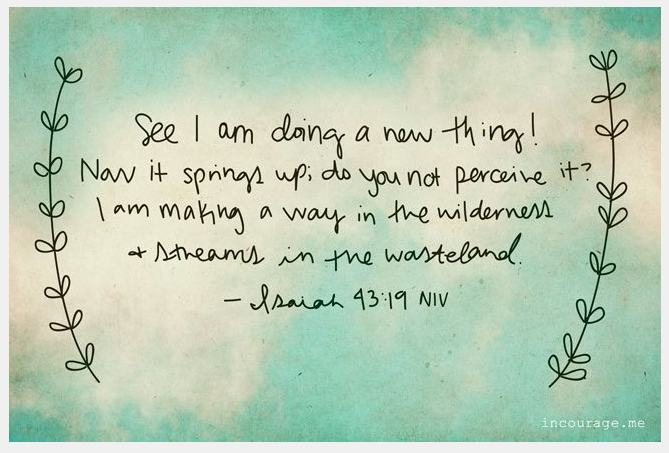 See I am doing a new thing!
Now it springs up; do you not perceive it?
I am making a way in the wilderness
+ streams in the wasteland.
- Isaiah 43:19 NIV
incourage.me